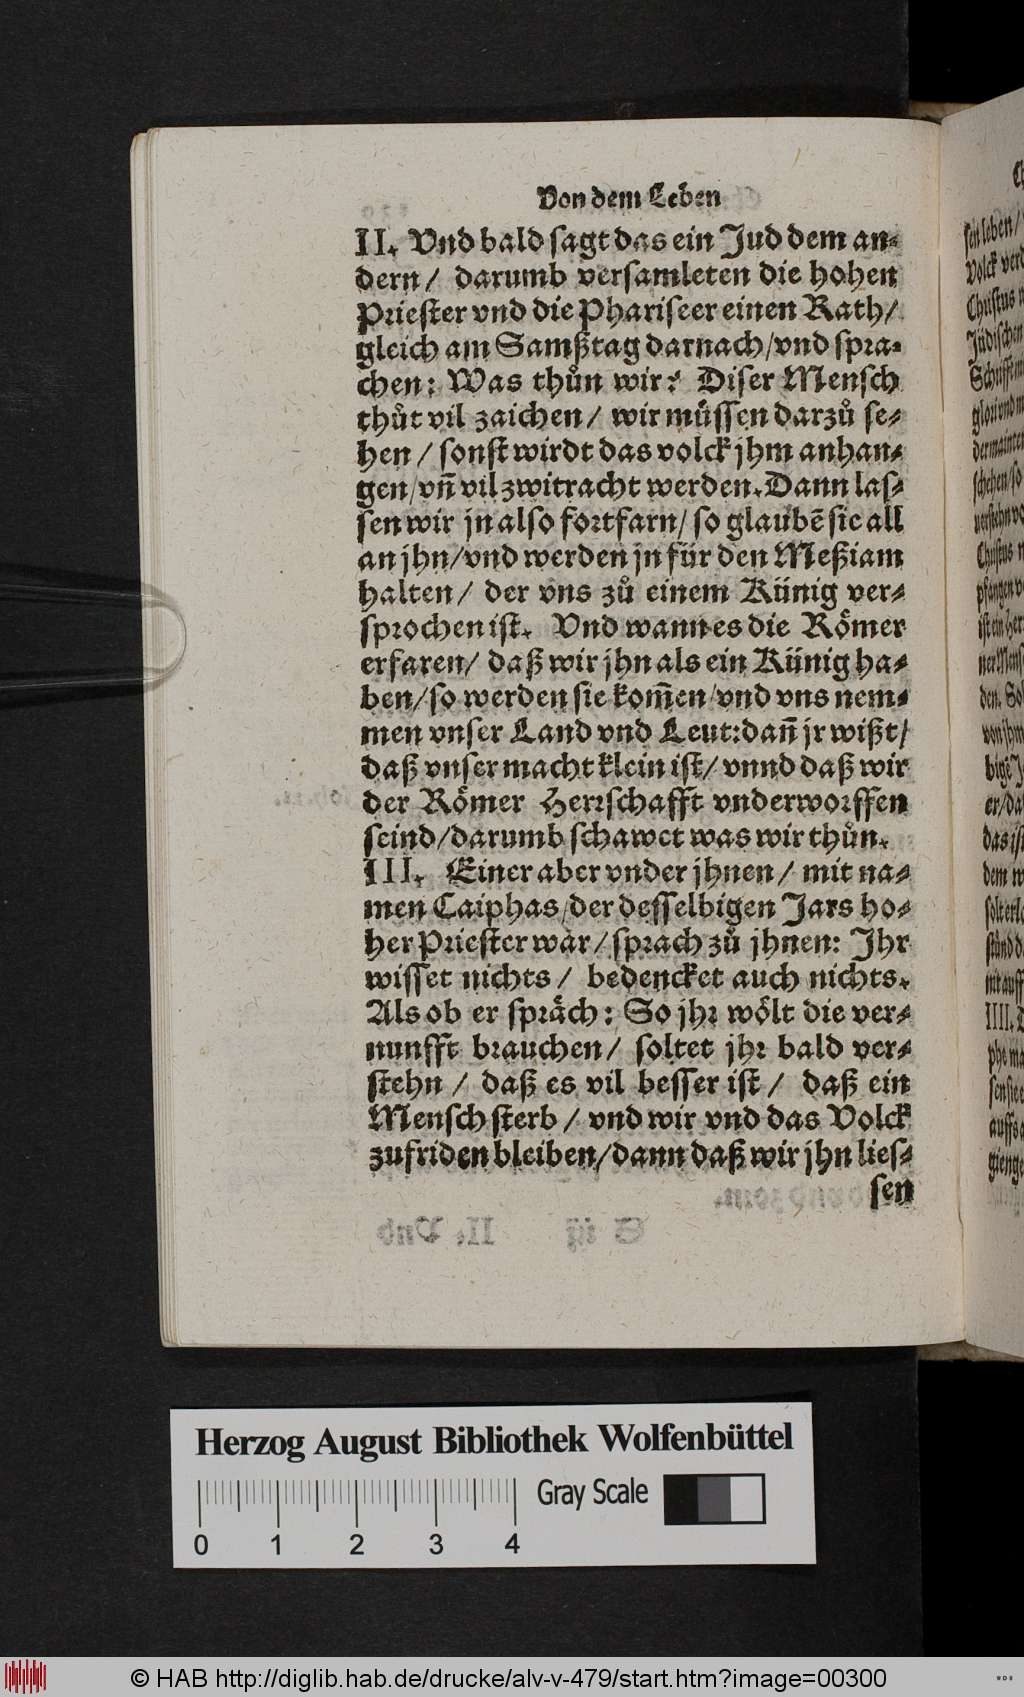 Von dem Leben
II. Vnd bald sagt das ein Jud dem an-
dern / darumb versamleten die hohen
Priester vnd die Phariseer einen Rath/
gleich am Samßtag darnach/vnd spra-
chen: Was thůn wir? Diser Mensch
thůt vil zaichen / wir müssen darzů se-
hen / sonst wirdt das volck jhm anhan-
gen/vñ vil zwitracht werden. Dann las-
sen wir jn also fortfarn/ so glaubẽ sie all
an jhn/vnd werden jn für den Meßiam
halten / der vns zů einem Künig ver-
sprochen ist. Vnd wann es die Römer
erfaren/ daß wir jhn als ein Künig ha-
ben/so werden sie kom̃en/vnd vns nem-
men vnser Land vnd Leut: dañ jr wißt/
daß vnser macht klein ist/ vnnd daß wir
der Römer Herrschafft vnderworffen
seind/darumb schawet was wir thůn.
III. Einer aber vnder jhnen / mit na-
men Caiphas/der desselbigen Jars ho-
her Priester war / sprach zů jhnen: Jhr
wisset nichts / bedencket auch nichts.
Als ob er spräch: So jhr wölt die ver-
nunfft brauchen / soltet jhr bald ver-
stehn / daß es vil besser ist / daß ein
Mensch sterb / vnd wir vnd das Volck
zufriden bleiben/dann daß wir jhn lies-
sen
sein leben/
Volck
Christus
Jüdischen
glori vnd
schehen/so
Christus
pfangen
ist ein
den.
von jhm
das
dem
IIII.
Herzog August Bibliothek Wolfenbüttel
Gray Scale
0 1 2 3 4
© HAB http://diglib.hab.de/drucke/alv-v-479/start.htm?image=00300